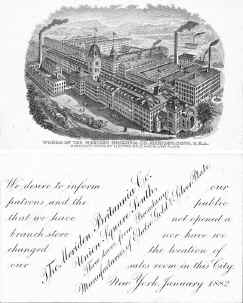 WORKS OF THE MERIDEN BRITANNIA CO. MERIDEN, CONN. U.S.A.
We desire to inform our
patrons and the public
that we have not opened a
branch store nor have we
changed the location of
our sales room in this City.
The Meriden Britannia Co.
Union Square South,
Three doors from Broadway
Manufacturers of Electro Gold & Silver Plate
New York, January 1882